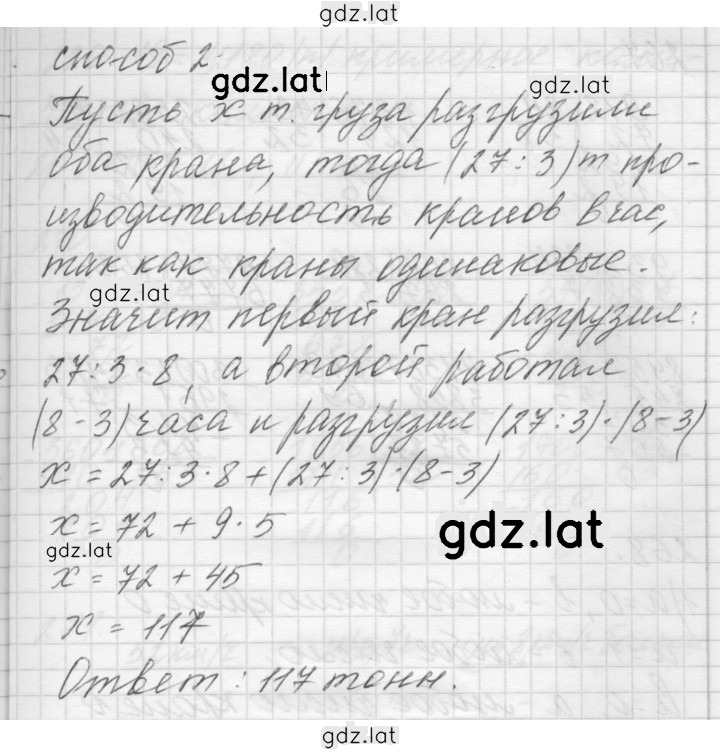 gdz.lat
способ 2
gdz.lat
gdz.lat
Пусть x т. груза разгрузили
оба крана, тогда (27:3) т про-
изводительность кранов в час,
так как краны одинаковые.
gdz.lat
Значит первый кран разгрузил:
27:3·8, а второй работал
(8-3) часа и разгрузил (27:3)·(8-3)
x = 27:3·8+(27:3)·(8-3)
x = 72 + 9·5
gdz.lat
gdz.lat
x = 72 + 45
x = 117
Ответ: 117 тонн.
gdz.lat